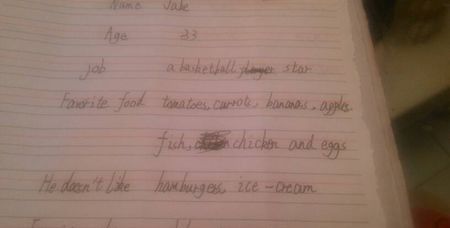 Name Jake
Age 33
job a basketball player star
Favorite food tomatoes, carrots, bananas, apples
fish, chicken and eggs
He doesn't like hamburgers, ice-cream